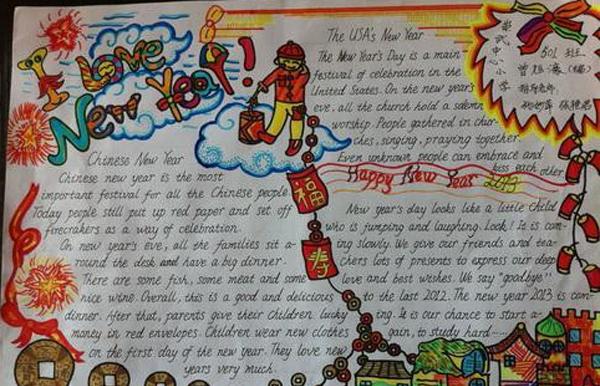 I Love
New Year!
The USA's New Year
The New Year's Day is a main
festival of celebration in the
United States. On the new year's
eve, all the church hold a solemn
worship. People gathered in chur-
ches, singing, praying together.
Even unknown people can embrace and
kiss each other
Happy New Year 2013
501 班
中心小学
Chinese New Year
Chinese new year is the most
important festival for all the Chinese people
Today people still put up red paper and set off
firecrakers as a way of celebration.
On new year's eve, all the families sit a-
round the desk and have a big dinner.
There are some fish, some meat and some
nice wine. Overall, this is a good and delicious
dinner. After that, parents give their children lucky
money in red envelopes. Children wear new clothes
on the first day of the new year. They love new
years very much.
福
寿
New year's day looks like a little child
who is jumping and laughing. Look! It is com-
ing slowly. We give our friends and tea-
chers lots of presents to express our deep
love and best wishes. We say "goodbye"
to the last 2012. The new year 2013 is com-
ing. It is our chance to start a-
gain, to study hard......